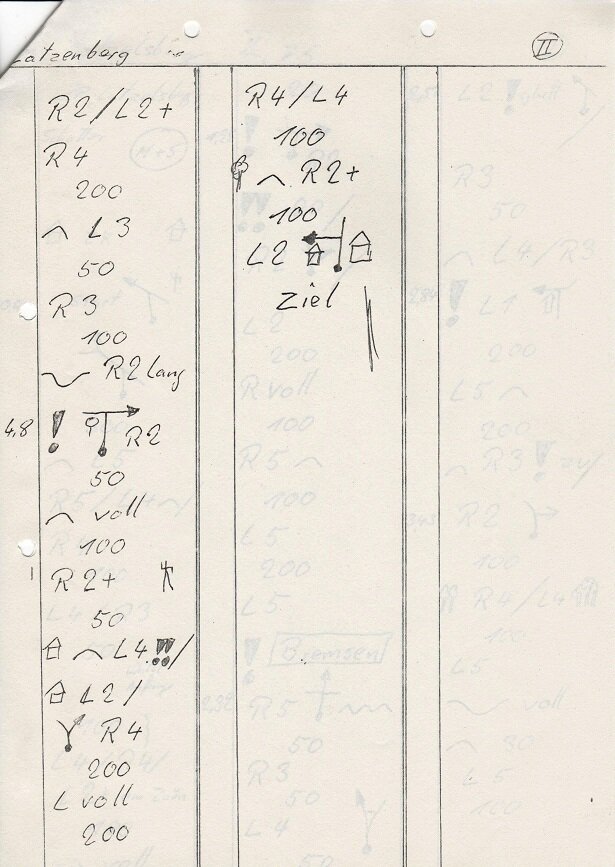 atzenberg
II
R2/L2+
R4
200
L3
50
R3
100
R2 Lang
4,8 ! R2
50
voll
100
R2+
50
L4!!/
L2/
R4
200
L voll
200
R4/L4
100
R2+
100
L2
Ziel